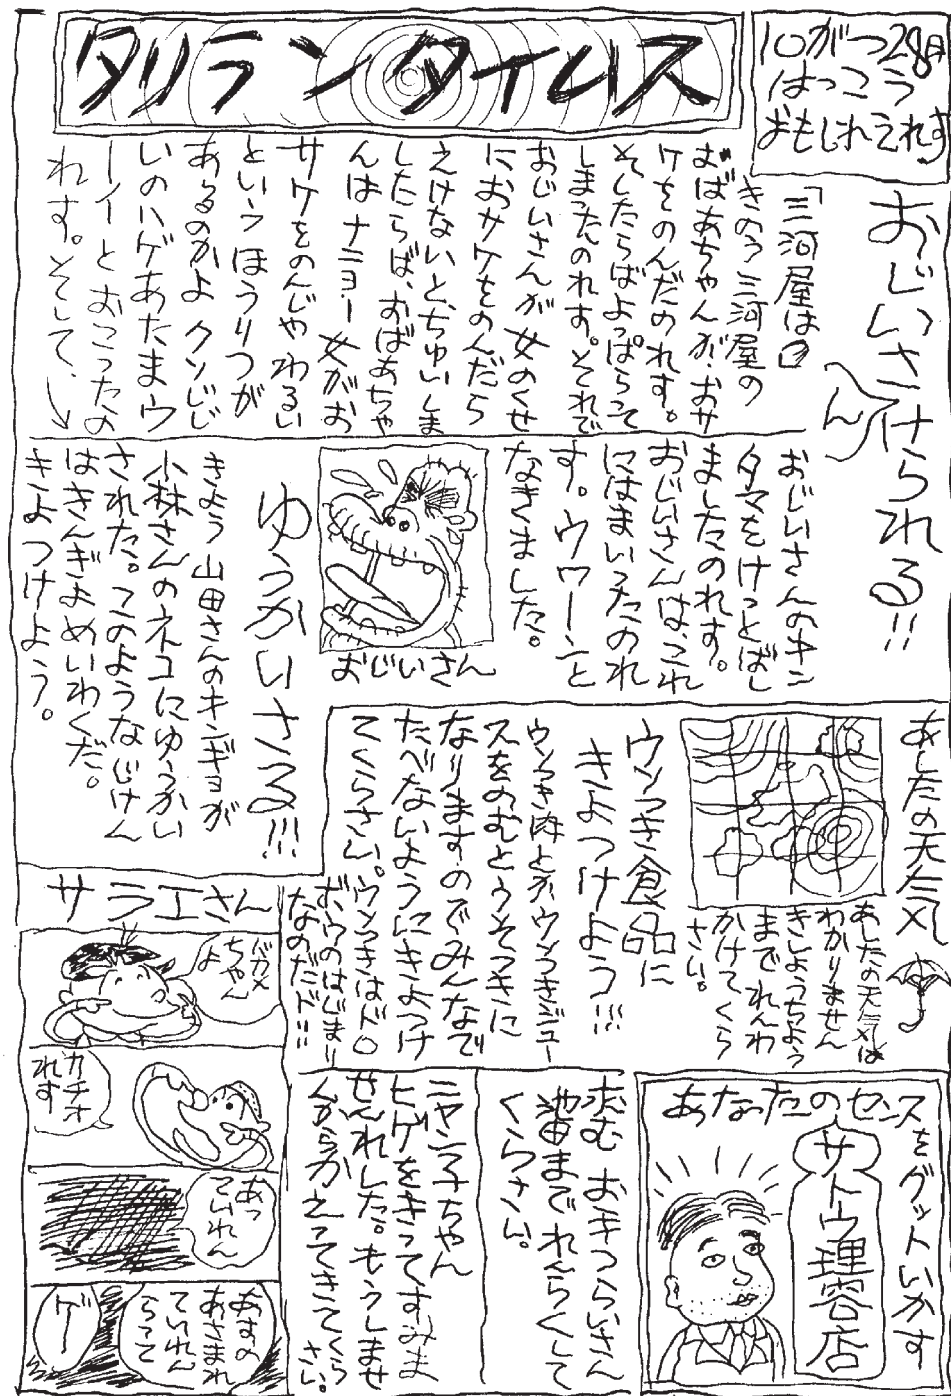 タリランタイムス
10がつ28日
はっこう
おもしれえれす
おじいさんけられる!!
「三河屋は
きのう三河屋の
おばあちゃんが、おサ
ケをのんだのれす。
そしたらばよっぱらって
しまったのれす。それで
おじいさんが女のくせ
におサケをのんだら
えけないと、ちゅいしま
したらば、おばあちゃ
んはナニョー女がお
サケをのんじゃわるい
というほうりつが
あるのかよクソじじ
いのハゲあたまウ
ーイーとおこったの
れす。そして、
おじいさんのキン
タマをけっとばし
ましたのれす。
おじいさんは、これ
にはまいったのれ
す。ウワーンと
なきました。
おじいさん
ゆうかいさる!!!
きよう山田さんのキンギョが
小林さんのネコにゆうかい
された。このようなじけん
はきんぎょめいわくだ。
きよつけよう。
あしたの天気
あしたの天気は
わかりません
きしょうちょう
までれんわ
かけてくら
さい。
ウソつき食品に
きよつけよう!!!
ウソつき肉とかウソつきジュー
スをのむとうそつきに
なりますのでみんなで
たべないようにきよつけ
てくらさい。ウソつきはドロ
ボウのはじまり
なのだド!!
サラエさん
バカメ
ちゃん
よ
カチオ
れす
あっ
ていれん
あすの
あさまれ
ていれん
らって
ゲー
あなたのセンスをグットいかす
サトウ理容店
求む おきつらいさん
池田までれんらくして
くらさい。
ニャン子ちゃん
ヒゲをきってすみま
せんれした。もうしませ
んからかえってきてくら
さい。